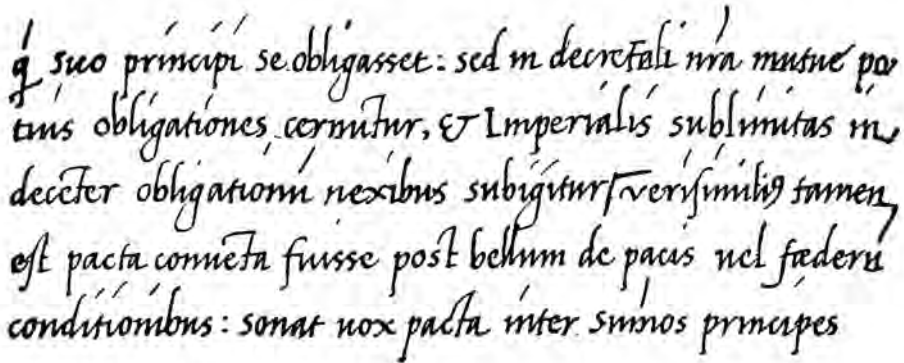 q̃ suo principi se obligasset: sed in decretali nr̃a mutue po
tius obligationes cernũtur, & Imperialis sublimitas in,
decẽter obligationũ nexibus subigitur/ verisimiliꝰ tamen,
est pacta conuẽta fuisse post bellum de pacis uel fœderũ
conditionibus: sonat uox pacta inter sum̃os principes